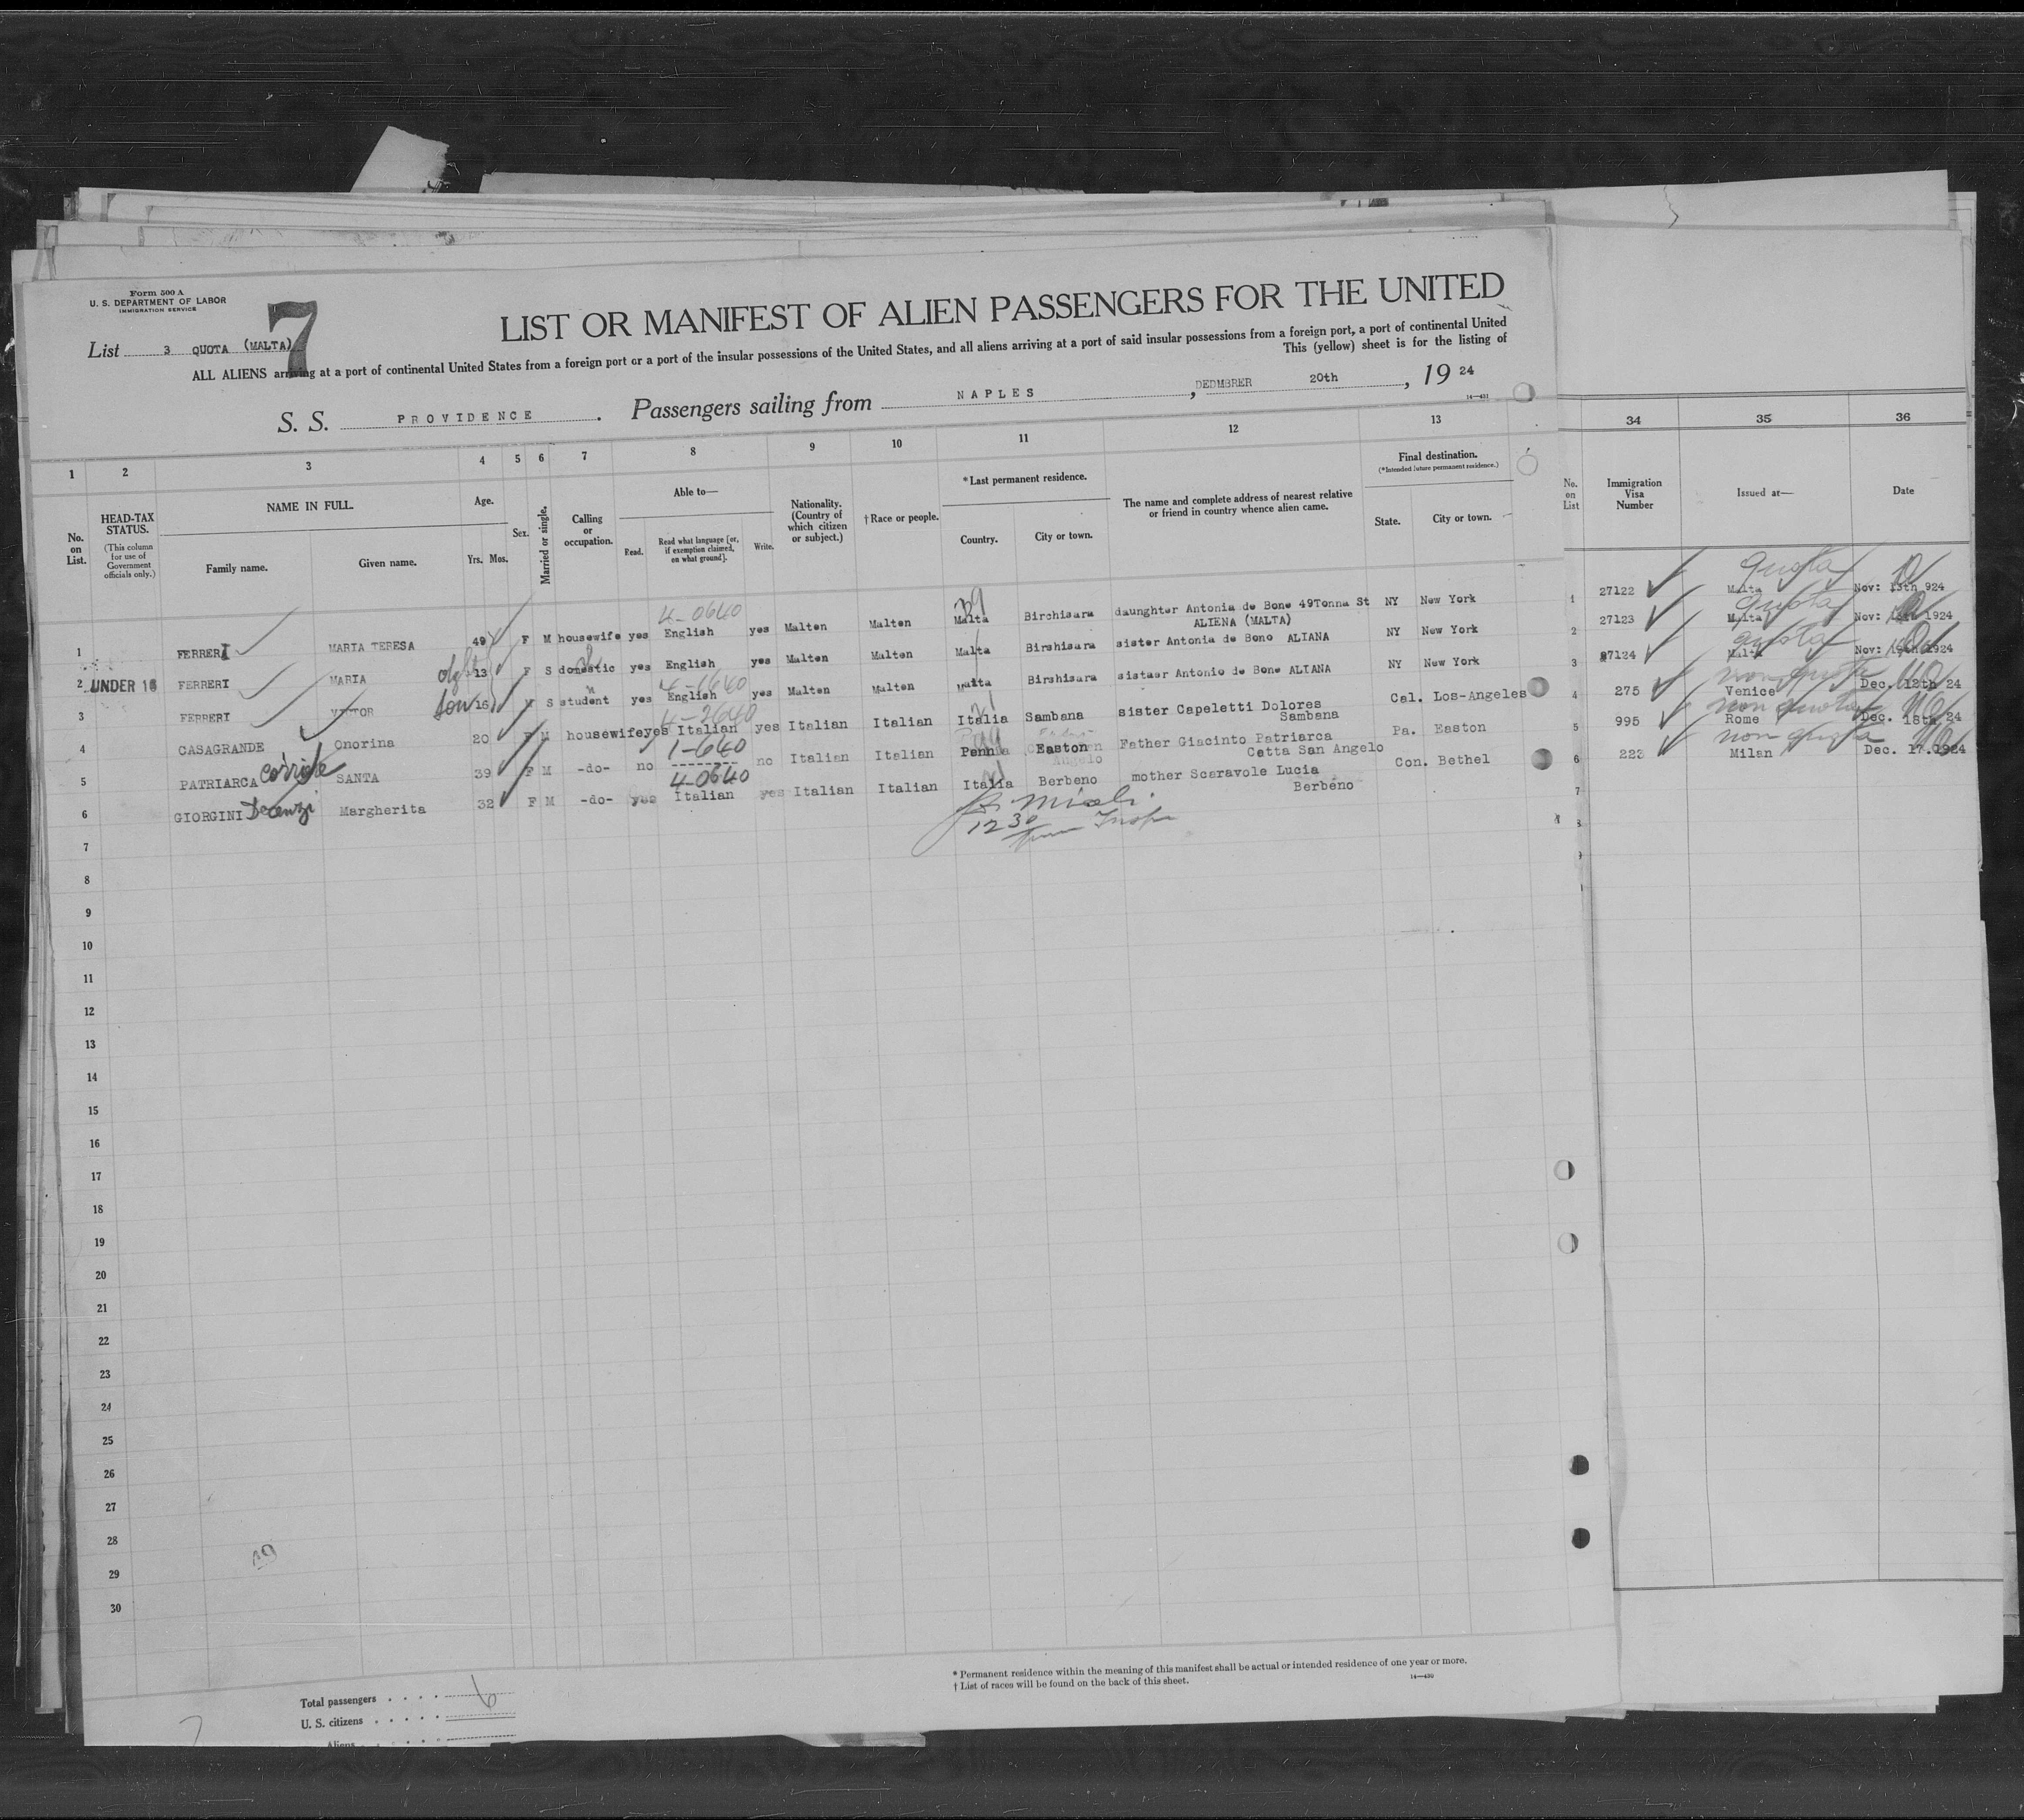 Form 500 A
U. S. DEPARTMENT OF LABOR
IMMIGRATION SERVICE
7
List 3 QUOTA (MALTA)
LIST OR MANIFEST OF ALIEN PASSENGERS FOR THE UNITED
ALL ALIENS arriving at a port of continental United States from a foreign port or a port of the insular possessions of the United States, and all aliens arriving at a port of said insular possessions from a foreign port, a port of continental United
This (yellow) sheet is for the listing of
S. S. PROVIDENCE. Passengers sailing from NAPLES, DEDMBRER 20th, 19 24
14—431
1 2 3 4 5 6 7 8 9 10 11 12 13 34 35 36
No. on List.
HEAD-TAX STATUS.
(This column for use of Government officials only.)
NAME IN FULL.
Family name. Given name.
Age.
Yrs. Mos.
Sex.
Married or single.
Calling or occupation.
Able to—
Read. Read what language [or, if exemption claimed, on what ground]. Write.
Nationality. (Country of which citizen or subject.)
† Race or people.
*Last permanent residence.
Country. City or town.
The name and complete address of nearest relative or friend in country whence alien came.
Final destination.
(*Intended future permanent residence.)
State. City or town.
No. on List
Immigration Visa Number
Issued at—
Date
4-0640 39 quota
1 FERRERI MARIA TERESA 49 F M housewife yes English yes Malten Malten Malta Birchisara daunghter Antonia de Bone 49Tonna St ALIENA (MALTA) NY New York 1 27122 Malta Nov: 13th 924
quota
2 UNDER 16 FERRERI MARIA 13 F S domestic yes English yes Malten Malten Malta Birshisara sister Antonia de Bono ALIANA NY New York 2 27123 Malta Nov: 1924
4-1640 quota
3 FERRERI VITTOR son 16 M S student yes English yes Malten Malten Malta Birshisara sistasr Antonio de Bone ALIANA NY New York 3 27124 Malta Nov: 19th 1924
4-2640 non quota
4 CASAGRANDE Onorina 20 F M housewife yes Italian yes Italian Italian Italia Sambana sister Capeletti Dolores Sambana Cal. Los-Angeles 4 275 Venice Dec. 12th 24
1-640 non quota
5 PATRIARCA SANTA 39 F M -do- no -------- no Italian Italian Pennia Easton Father Giacinto Patriarca Catta San Angelo Pa. Easton 5 995 Rome Dec. 18th 24
4-0640 non quota
6 GIORGINI Margherita 32 F M -do- yes Italian yes Italian Italian Italia Berbeno mother Scaravole Lucia Berbeno Con. Bethel 6 223 Milan Dec. 17.1924
12 30
7
8
9
10
11
12
13
14
15
16
17
18
19
20
21
22
23
24
25
26
27
28
29
30
* Permanent residence within the meaning of this manifest shall be actual or intended residence of one year or more.
† List of races will be found on the back of this sheet.
14—430
Total passengers . . . . 6
U. S. citizens . . . . .
Aliens